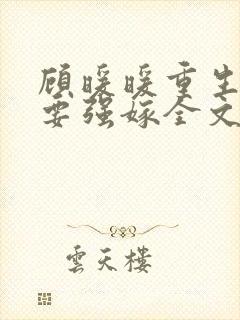 顾暖暖重生
要强嫁全文
雲天樓